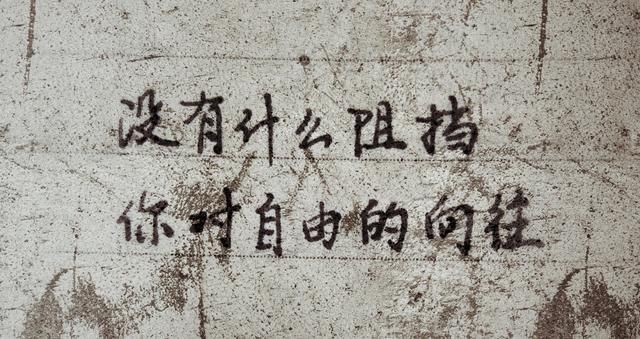 没有什么阻挡
你对自由的向往